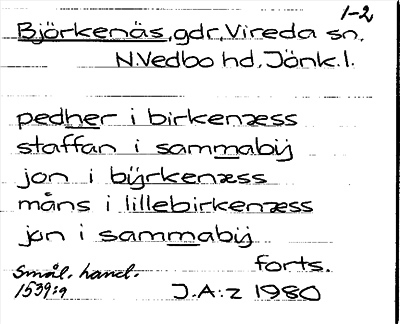 1-2
Björkenäs, gdr, Vireda sn,
N.Vedbo hd, Jönk.l.
pedher i birkenæss
staffan i sammabij
jon i bijrkenæss
måns i lillebirkenæss
jon i sammabij
forts.
Smål. handl.
1539:9
J.A:z 1980